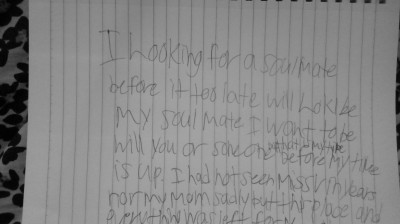 I Looking for a soulmate
before it too late will be
my soul mate I want to be
will you or someone before my time
is up. I had not seen Miss in years
nor my Mom sadly but this place and
everything was left for